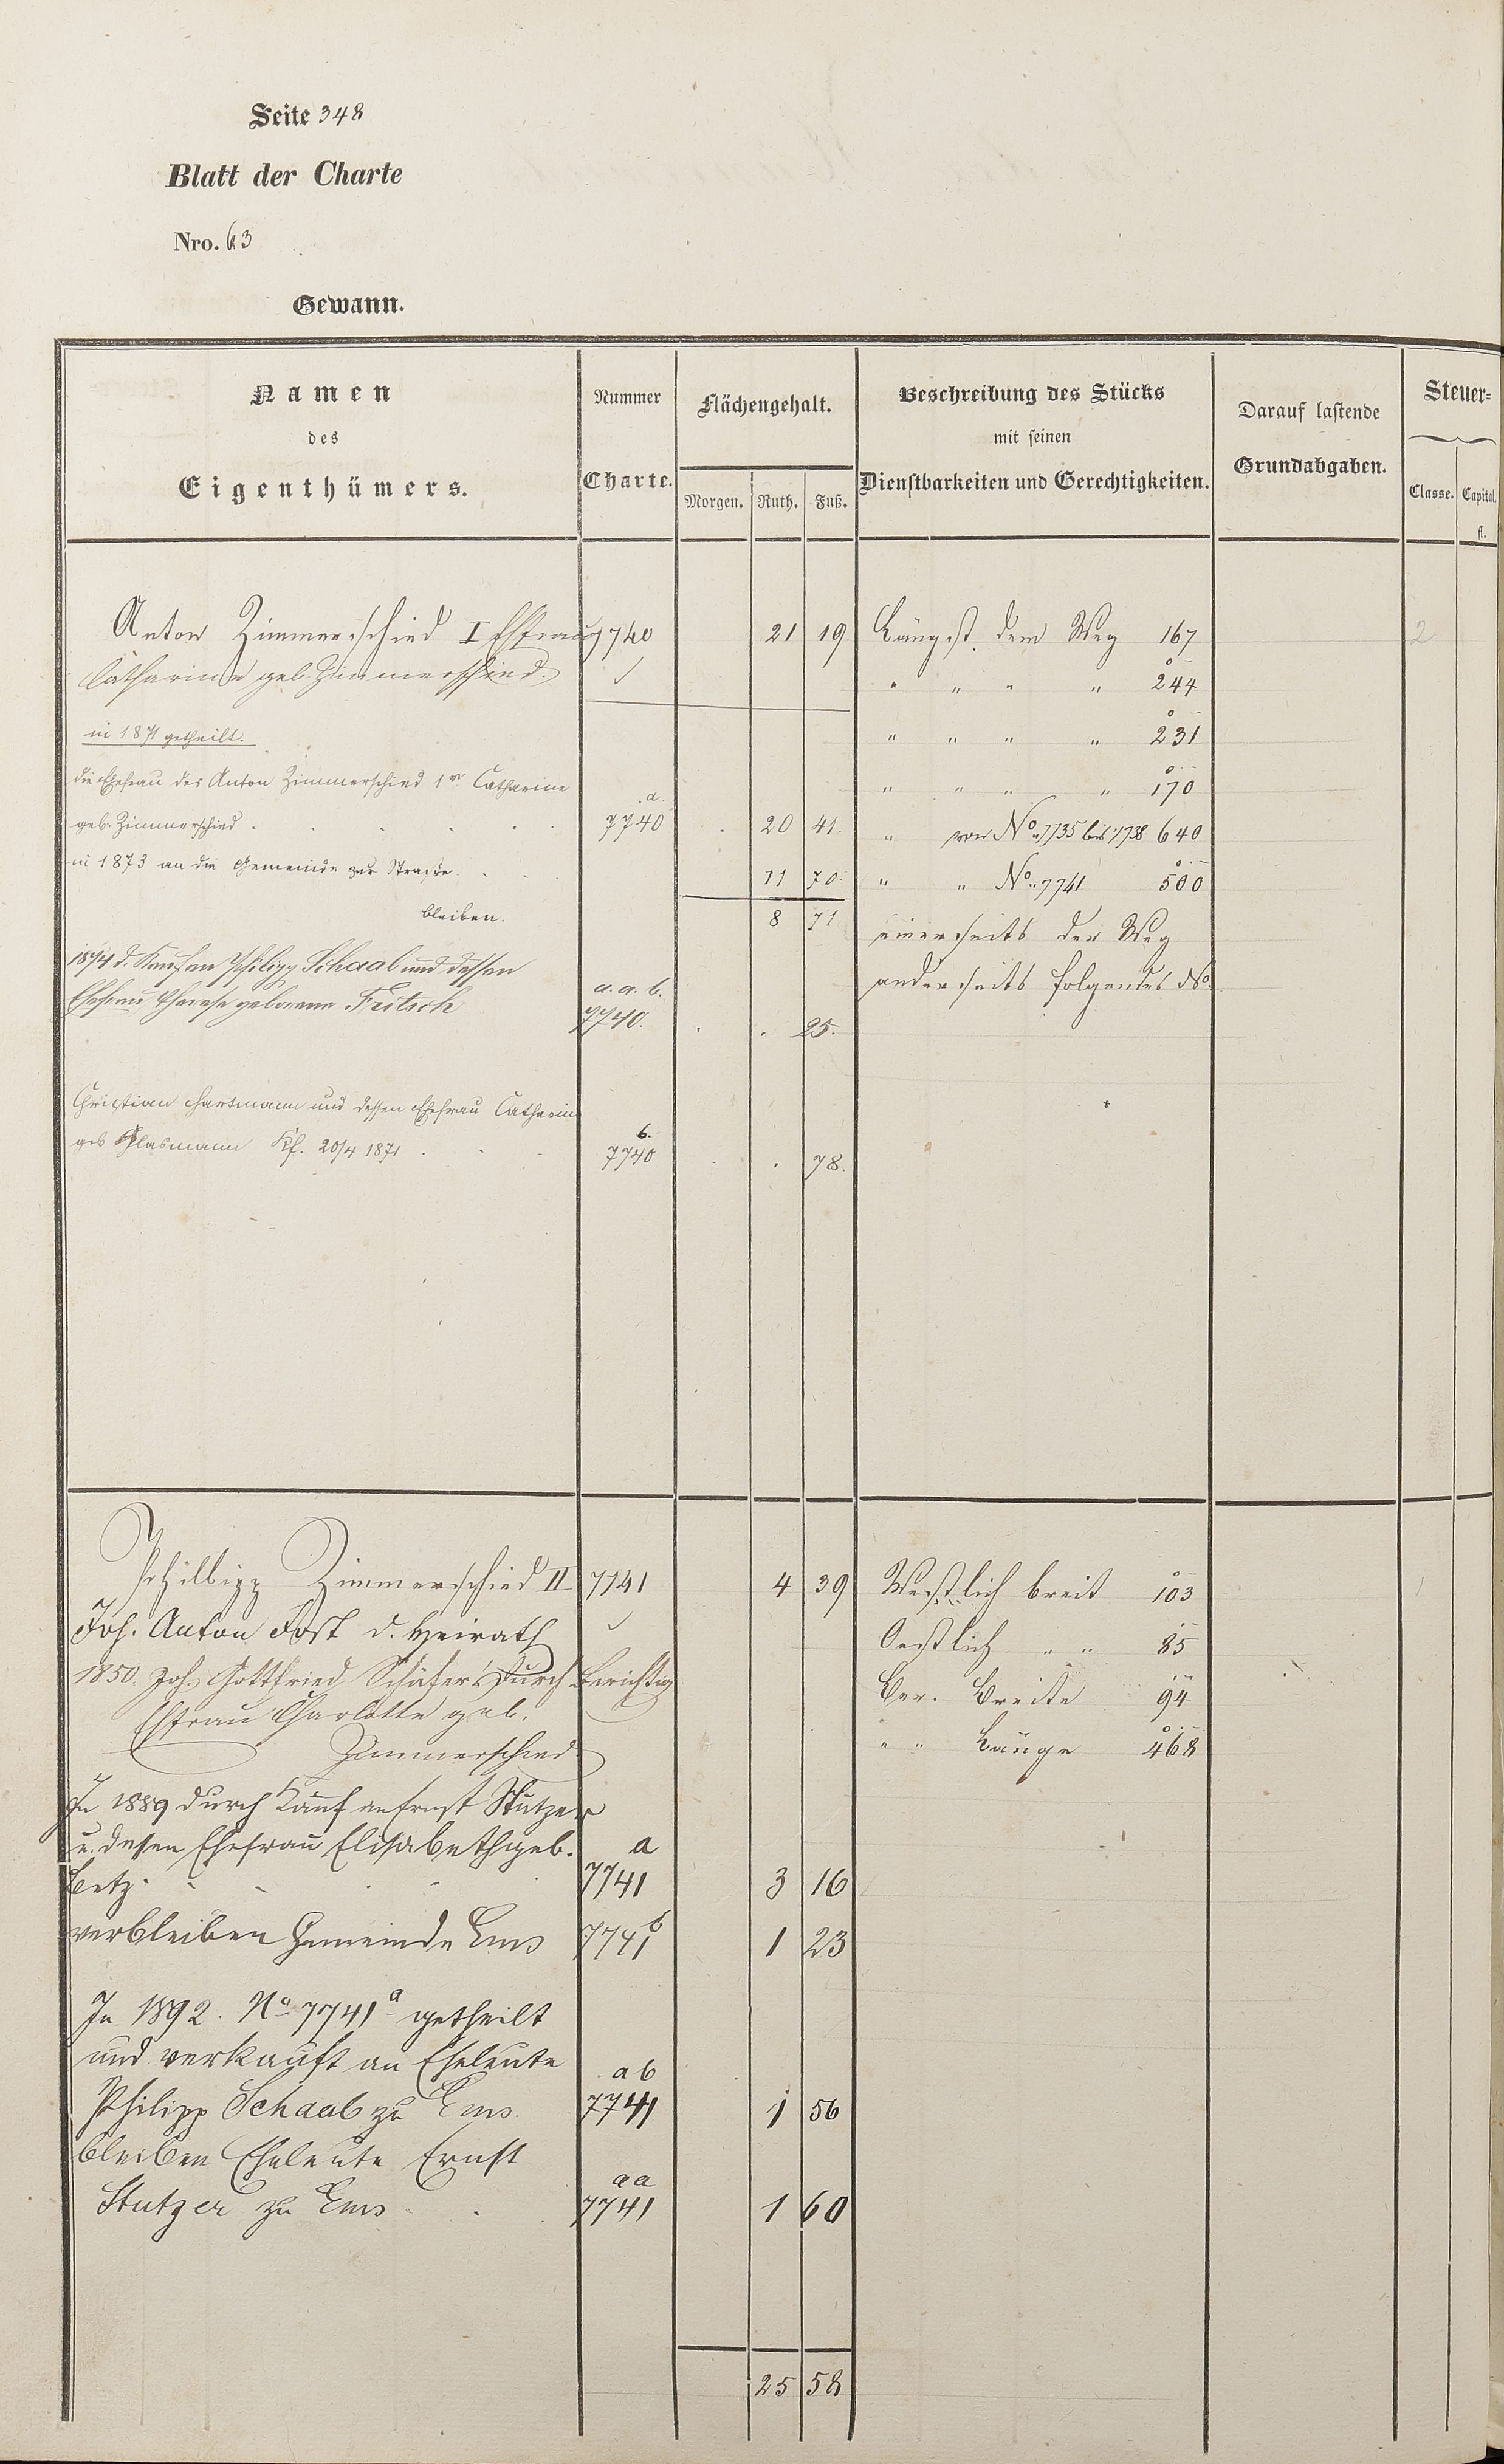 Seite 348
Blatt der Charte
Nro. 63
Gewann.
Namen des Eigenthümers.
Nummer Charte.
Flächengehalt.
Morgen. Ruth. Fuß.
Beschreibung des Stücks mit seinen Dienstbarkeiten und Gerechtigkeiten.
Darauf lastende Grundabgaben.
Steuer=
Classe. Capital. fl.
Anton Zimmerschied I Ehfrau 7740 21 19 Längst dem Weg 167 2
Catharine geb. Zimmerschied.
" " " " 244
in 1871 getheilt.
" " " " 231
die Ehefrau des Anton Zimmerschied 1r Catharine
" " " " 170
geb. Zimmerschied . a. 7740 20 41. " von No 7735 bis 7738 640
in 1873 an die Gemeinde zur Straße 11 70. " " No 7741 500
bleiben. 8 71 einerseits der Weg
1874 d. Kauf an Philipp Schaab und dessen anderseits folgendes No.
Ehefrau Therese geborene Fritsch a. a. b. 7740. 25.
Christian Hartmann und dessen Ehefrau Catharin
geb Glasmann Kf. 20/4 1871 b. 7740 78.
Philipp Zimmerschied II 7741 4 39 Westlich breit 103 1
Joh. Anton Fost d. Heirath Oestlich " " 85
1850. Joh. Gottfried Schäfer's durch Berichtig Ber. Breite 94
Ehfrau Charlotte geb.
Zimmerschied " " Länge 468
In 1889 durch Kauf an Ernst Stutzer
u. dessen Ehefrau Elisabeth geb. a
Betz. 7741 3 16
verbleiben Gemeinde Ems 7741 b 1 23
In 1892. No 7741 a getheilt
und verkauft an Eheleute ab
Philipp Schaab zu Ems. 7741 1 56
bleiben Eheleute Ernst aa
Stutzer zu Ems 7741 1 60
25 58